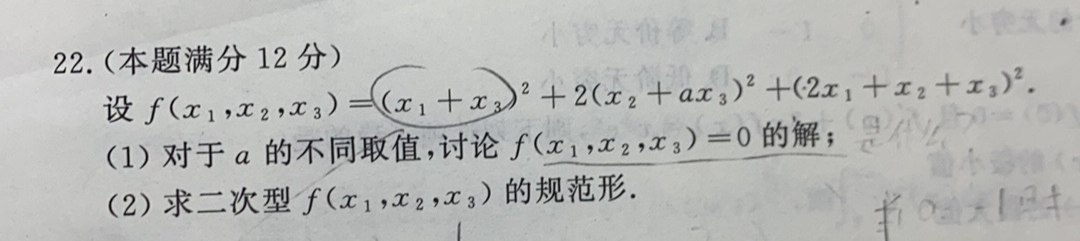 22.(本题满分 12 分)
设 f(x₁,x₂,x₃)=(x₁+x₃)²+2(x₂+ax₃)²+(2x₁+x₂+x₃)².
(1) 对于 a 的不同取值,讨论 f(x₁,x₂,x₃)=0 的解;
(2) 求二次型 f(x₁,x₂,x₃) 的规范形.